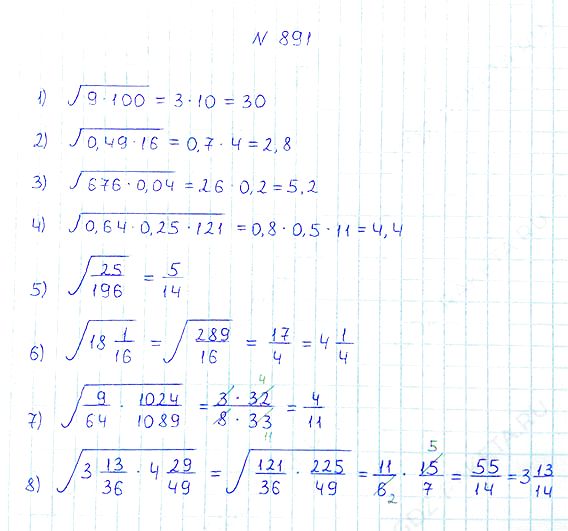 N 891
1) √(9·100) = 3·10 = 30
2) √(0,49·16) = 0,7·4 = 2,8
3) √(676·0,04) = 26·0,2 = 5,2
4) √(0,64·0,25·121) = 0,8·0,5·11 = 4,4
5) √(25/196) = 5/14
6) √(18 1/16) = √(289/16) = 17/4 = 4 1/4
7) √(9/64 · 1024/1089) = (3·32)/(8·33) 4 11 = 4/11
8) √(3 13/36 · 4 29/49) = √(121/36 · 225/49) = 11/6 2 · 15/7 5 = 55/14 = 3 13/14